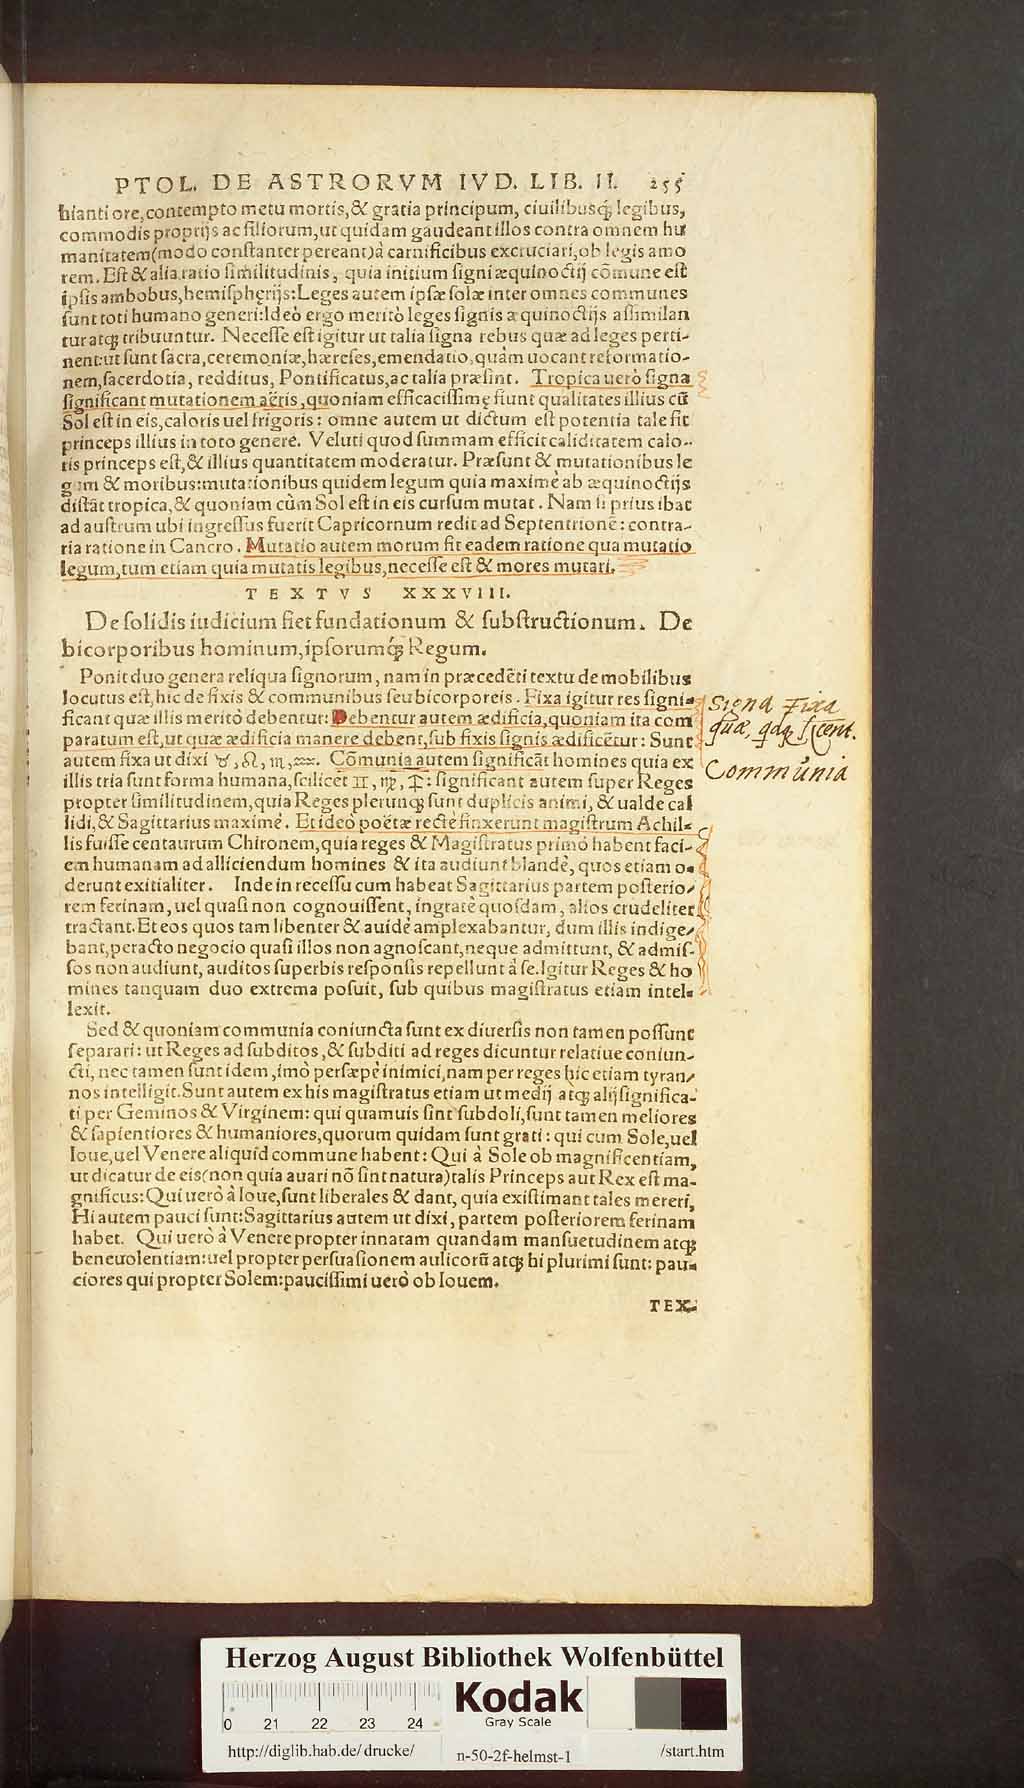 PTOL. DE ASTRORVM IVD. LIB. II. 255
hianti ore, contempto metu mortis, & gratia principum, ciuilibusq́; legibus,
commodis proprijs ac filiorum, ut quidam gaudeant illos contra omnem hu
manitatem (modo constanter pereant) à carnificibus excruciari, ob legis amo
rem. Est & alia ratio similitudinis, quia initium signi æquinoctij cōmune est
ipsis ambobus, hemispherijs: Leges autem ipsæ solæ inter omnes communes
sunt toti humano generi: Ideò ergo meritò leges signis æquinoctijs assimilan
tur atq; tribuuntur. Necesse est igitur ut talia signa rebus quæ ad leges perti-
nent: ut sunt sacra, ceremoniæ, hæreses, emendatio, quàm uocant reformatio-
nem, sacerdotia, redditus, Pontificatus, ac talia præsint. Tropica uerò signa
significant mutationem aëris, quoniam efficacissimę fiunt qualitates illius cū
Sol est in eis, caloris uel frigoris: omne autem ut dictum est potentia tale fit
princeps illius in toto genere. Veluti quod summam efficit caliditatem calo-
ris princeps est, & illius quantitatem moderatur. Præsunt & mutationibus le
gum & moribus: mutationibus quidem legum quia maximè ab æquinoctijs
distāt tropica, & quoniam cùm Sol est in eis cursum mutat. Nam si prius ibat
ad austrum ubi ingressus fuerit Capricornum redit ad Septentrionē: contra-
ria ratione in Cancro. Mutatio autem morum fit eadem ratione qua mutatio
legum, tum etiam quia mutatis legibus, necesse est & mores mutari.
TEXTVS XXXVIII.
De solidis iudicium fiet fundationum & substructionum. De
bicorporibus hominum, ipsorumq́; Regum.
Ponit duo genera reliqua signorum, nam in præcedēti textu de mobilibus
locutus est, hic de fixis & communibus seu bicorporeis. Fixa igitur res signi-
ficant quæ illis meritò debentur: Debentur autem ædificia, quoniam ita com
paratum est, ut quæ ædificia manere debent, sub fixis signis ædificētur: Sunt
autem fixa ut dixi ♉, ♌, ♏, ♒. Cōmunia autem significāt homines quia ex
illis tria sunt forma humana, scilicet ♊, ♍, ♐: significant autem super Reges
propter similitudinem, quia Reges plerunq; sunt duplicis animi, & ualde cal
lidi, & Sagittarius maximè. Et ideò poëtæ rectè finxerunt magistrum Achil-
lis fuisse centaurum Chironem, quia reges & Magistratus primò habent faci-
em humanam ad alliciendum homines & ita audiunt blandè, quos etiam o-
derunt exitialiter. Inde in recessu cum habeat Sagittarius partem posterio-
rem ferinam, uel quasi non cognouissent, ingratè quosdam, alios crudeliter
tractant. Et eos quos tam libenter & auidè amplexabantur, dum illis indige-
bant, peracto negocio quasi illos non agnoscant, neque admittunt, & admis-
sos non audiunt, auditos superbis responsis repellunt à se. Igitur Reges & ho
mines tanquam duo extrema posuit, sub quibus magistratus etiam intel-
lexit.
Sed & quoniam communia coniuncta sunt ex diuersis non tamen possunt
separari: ut Reges ad subditos, & subditi ad reges dicuntur relatiue coniun-
cti, nec tamen sunt idem, imò persæpè inimici, nam per reges hic etiam tyran-
nos intelligit. Sunt autem ex his magistratus etiam ut medij atq; alij significa-
ti per Geminos & Virginem: qui quamuis sint subdoli, sunt tamen meliores
& sapientiores & humaniores, quorum quidam sunt grati: qui cum Sole, uel
Ioue, uel Venere aliquid commune habent: Qui à Sole ob magnificentiam,
ut dicatur de eis (non quia auari nō sint natura) talis Princeps aut Rex est ma-
gnificus: Qui uerò à Ioue, sunt liberales & dant, quia existimant tales mereri,
Hi autem pauci sunt: Sagittarius autem ut dixi, partem posteriorem ferinam
habet. Qui uerò à Venere propter innatam quandam mansuetudinem atq;
beneuolentiam: uel propter persuasionem aulicorū atq; hi plurimi sunt: pau-
ciores qui propter Solem: paucissimi uerò ob Iouem.
TEX-
Signa Fixa
quæ,
Communia
Herzog August Bibliothek Wolfenbüttel
Kodak
Gray Scale
0 21 22 23 24
http://diglib.hab.de/drucke/ n-50-2f-helmst-1 /start.htm